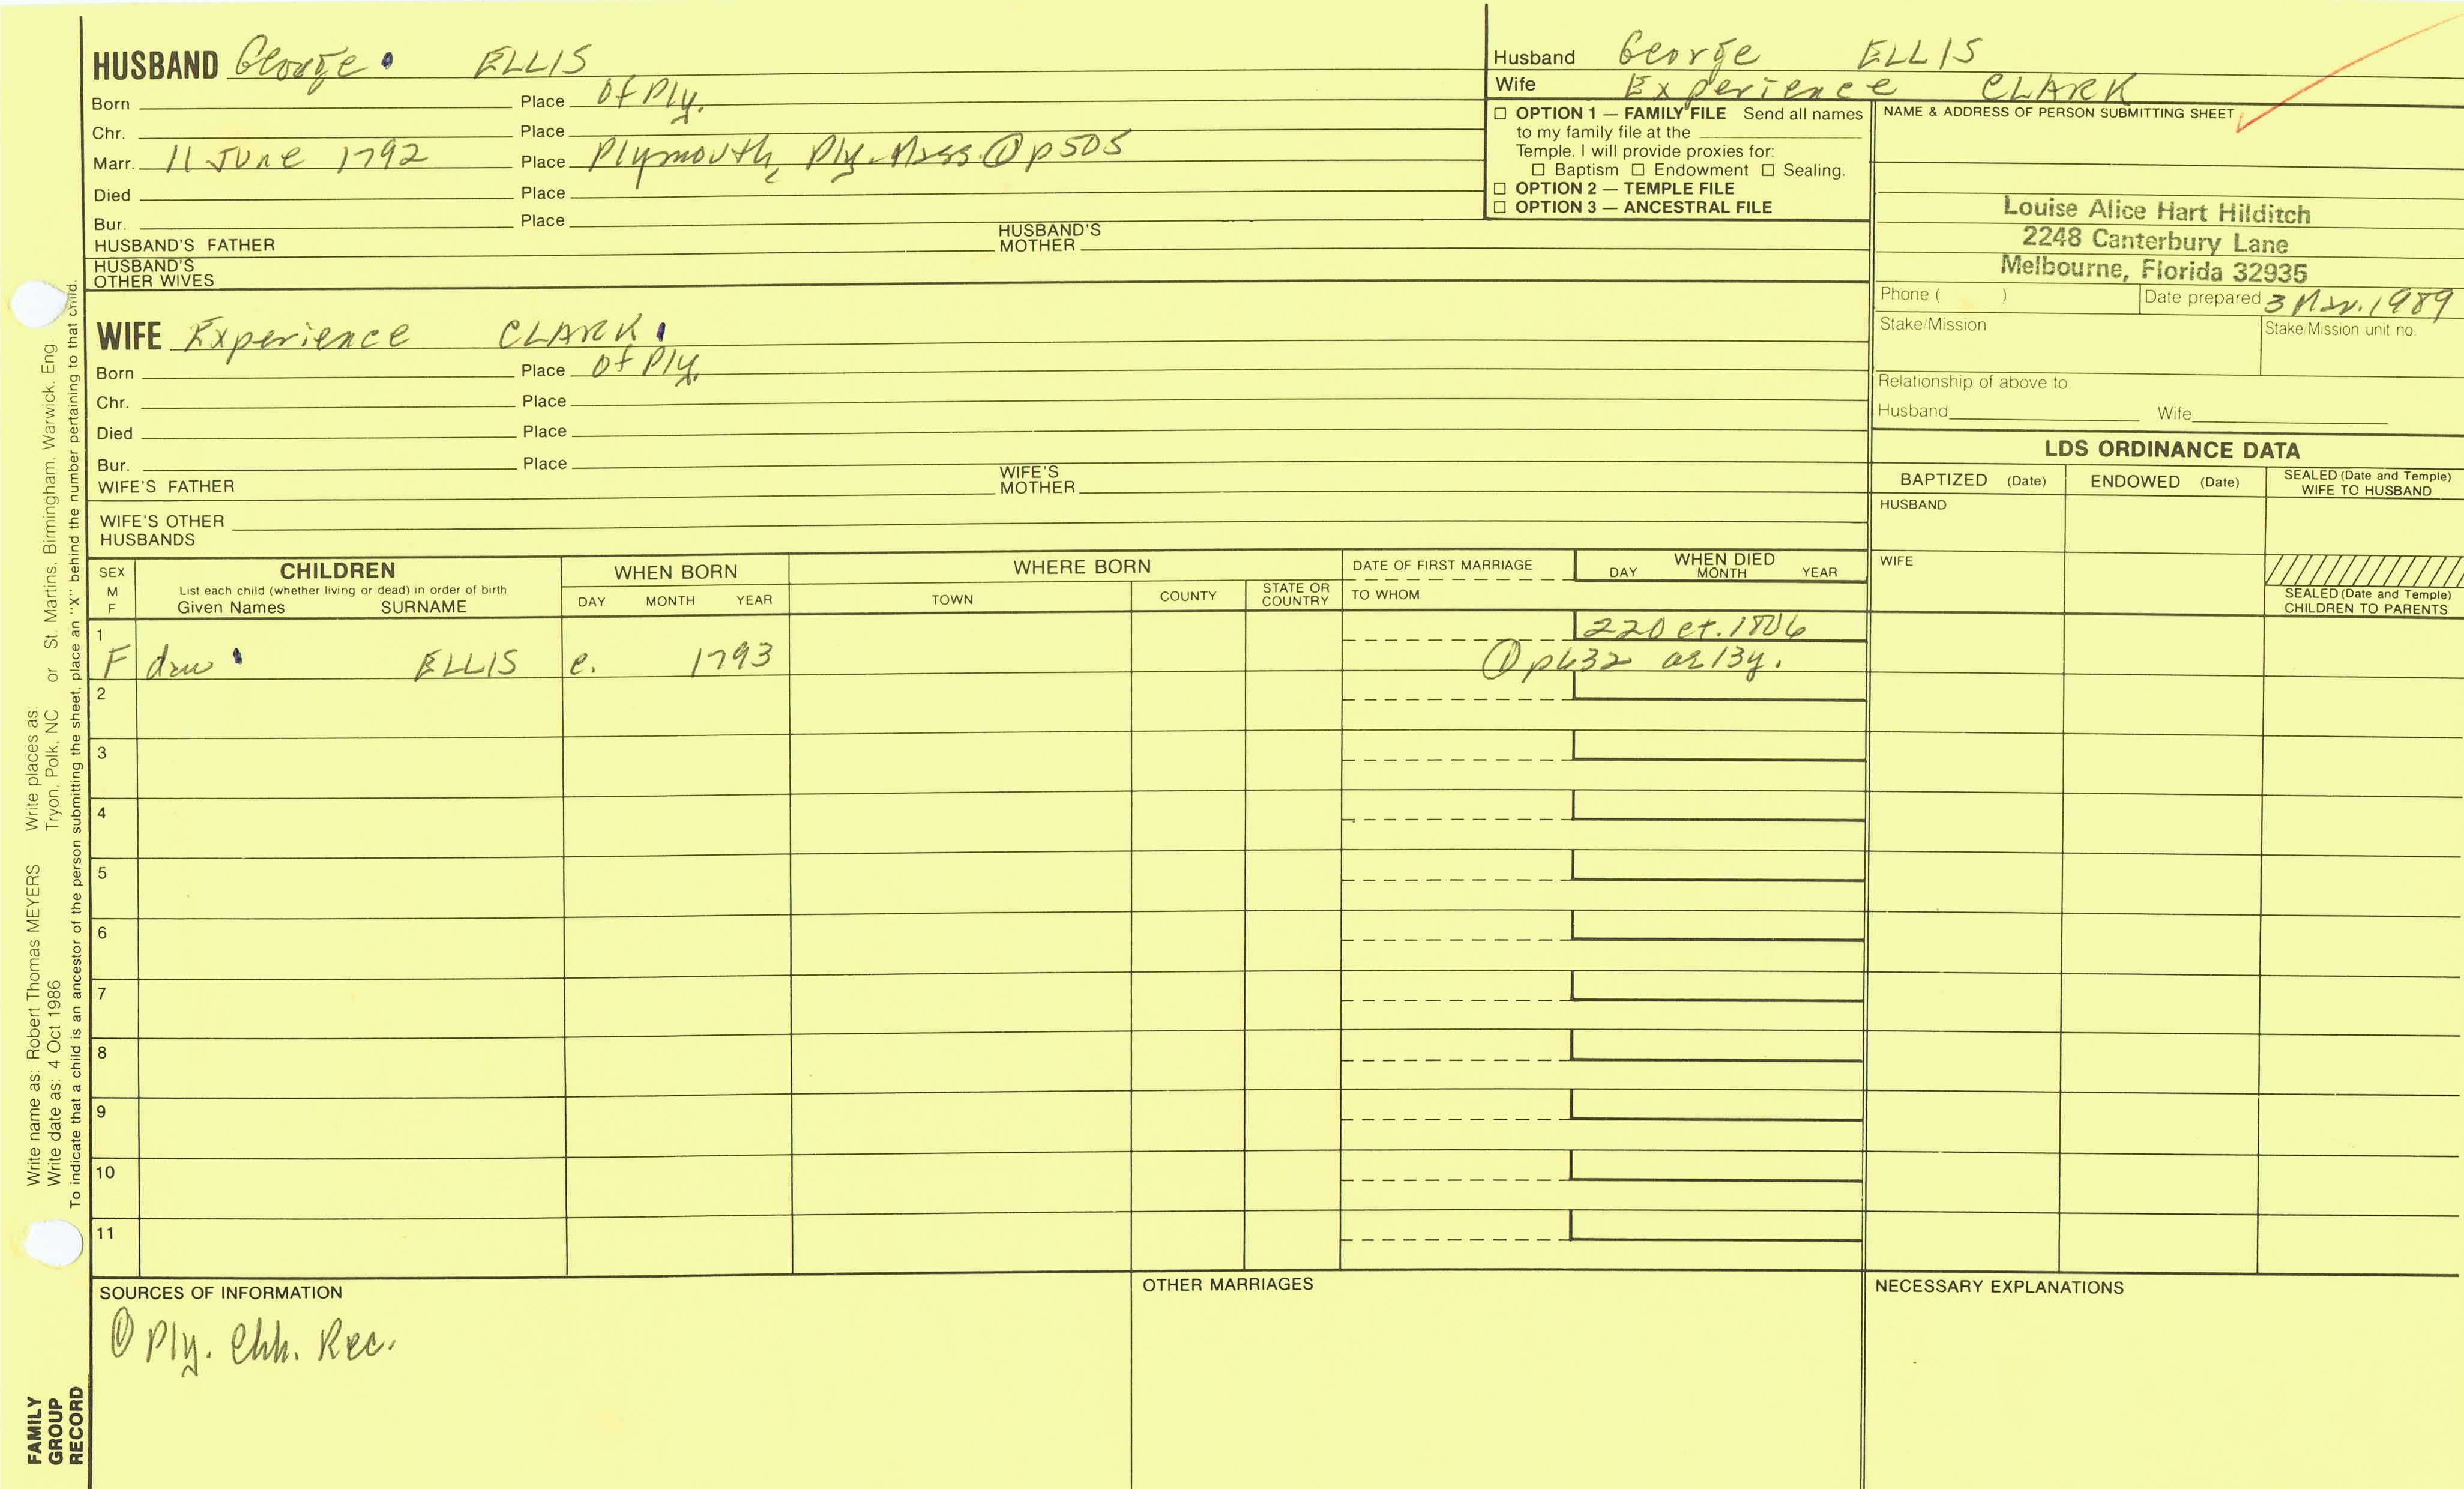 HUSBAND George ELLIS
Born Place Of Ply.
Chr. Place
Marr. 11 June 1792 Place Plymouth, Ply. Mass. ① p505
Died Place
Bur. Place
HUSBAND'S FATHER HUSBAND'S MOTHER
HUSBAND'S OTHER WIVES
Husband George ELLIS
Wife Experience CLARK
☐ OPTION 1 — FAMILY FILE Send all names
to my family file at the
Temple. I will provide proxies for:
☐ Baptism ☐ Endowment ☐ Sealing.
☐ OPTION 2 — TEMPLE FILE
☐ OPTION 3 — ANCESTRAL FILE
NAME & ADDRESS OF PERSON SUBMITTING SHEET
Louise Alice Hart Hilditch
2248 Canterbury Lane
Melbourne, Florida 32935
Phone ( ) Date prepared 3 1989
Stake/Mission Stake/Mission unit no.
Relationship of above to:
Husband Wife
WIFE Experience CLARK
Born Place Of Ply.
Chr. Place
Died Place
Bur. Place
WIFE'S FATHER WIFE'S MOTHER
WIFE'S OTHER HUSBANDS
LDS ORDINANCE DATA
BAPTIZED (Date) ENDOWED (Date) SEALED (Date and Temple) WIFE TO HUSBAND
HUSBAND
WIFE
SEALED (Date and Temple) CHILDREN TO PARENTS
SEX M F
CHILDREN
List each child (whether living or dead) in order of birth
Given Names SURNAME
WHEN BORN
DAY MONTH YEAR
WHERE BORN
TOWN COUNTY STATE OR COUNTRY
DATE OF FIRST MARRIAGE
TO WHOM
WHEN DIED
DAY MONTH YEAR
1 22 Oct. 1806
F dau ELLIS c. 1793 ① p632 ae 13y.
2
3
4
5
6
7
8
9
10
11
SOURCES OF INFORMATION
① Ply. Chh. Rec.
OTHER MARRIAGES
NECESSARY EXPLANATIONS
Write name as: Robert Thomas MEYERS Write places as: 
Write date as: 4 Oct 1986 Tryon, Polk, NC or St. Martins, Birmingham, Warwick, Eng.
To indicate that a child is an ancestor of the person submitting the sheet, place an "X" behind the number pertaining to that child.
FAMILY
GROUP
RECORD